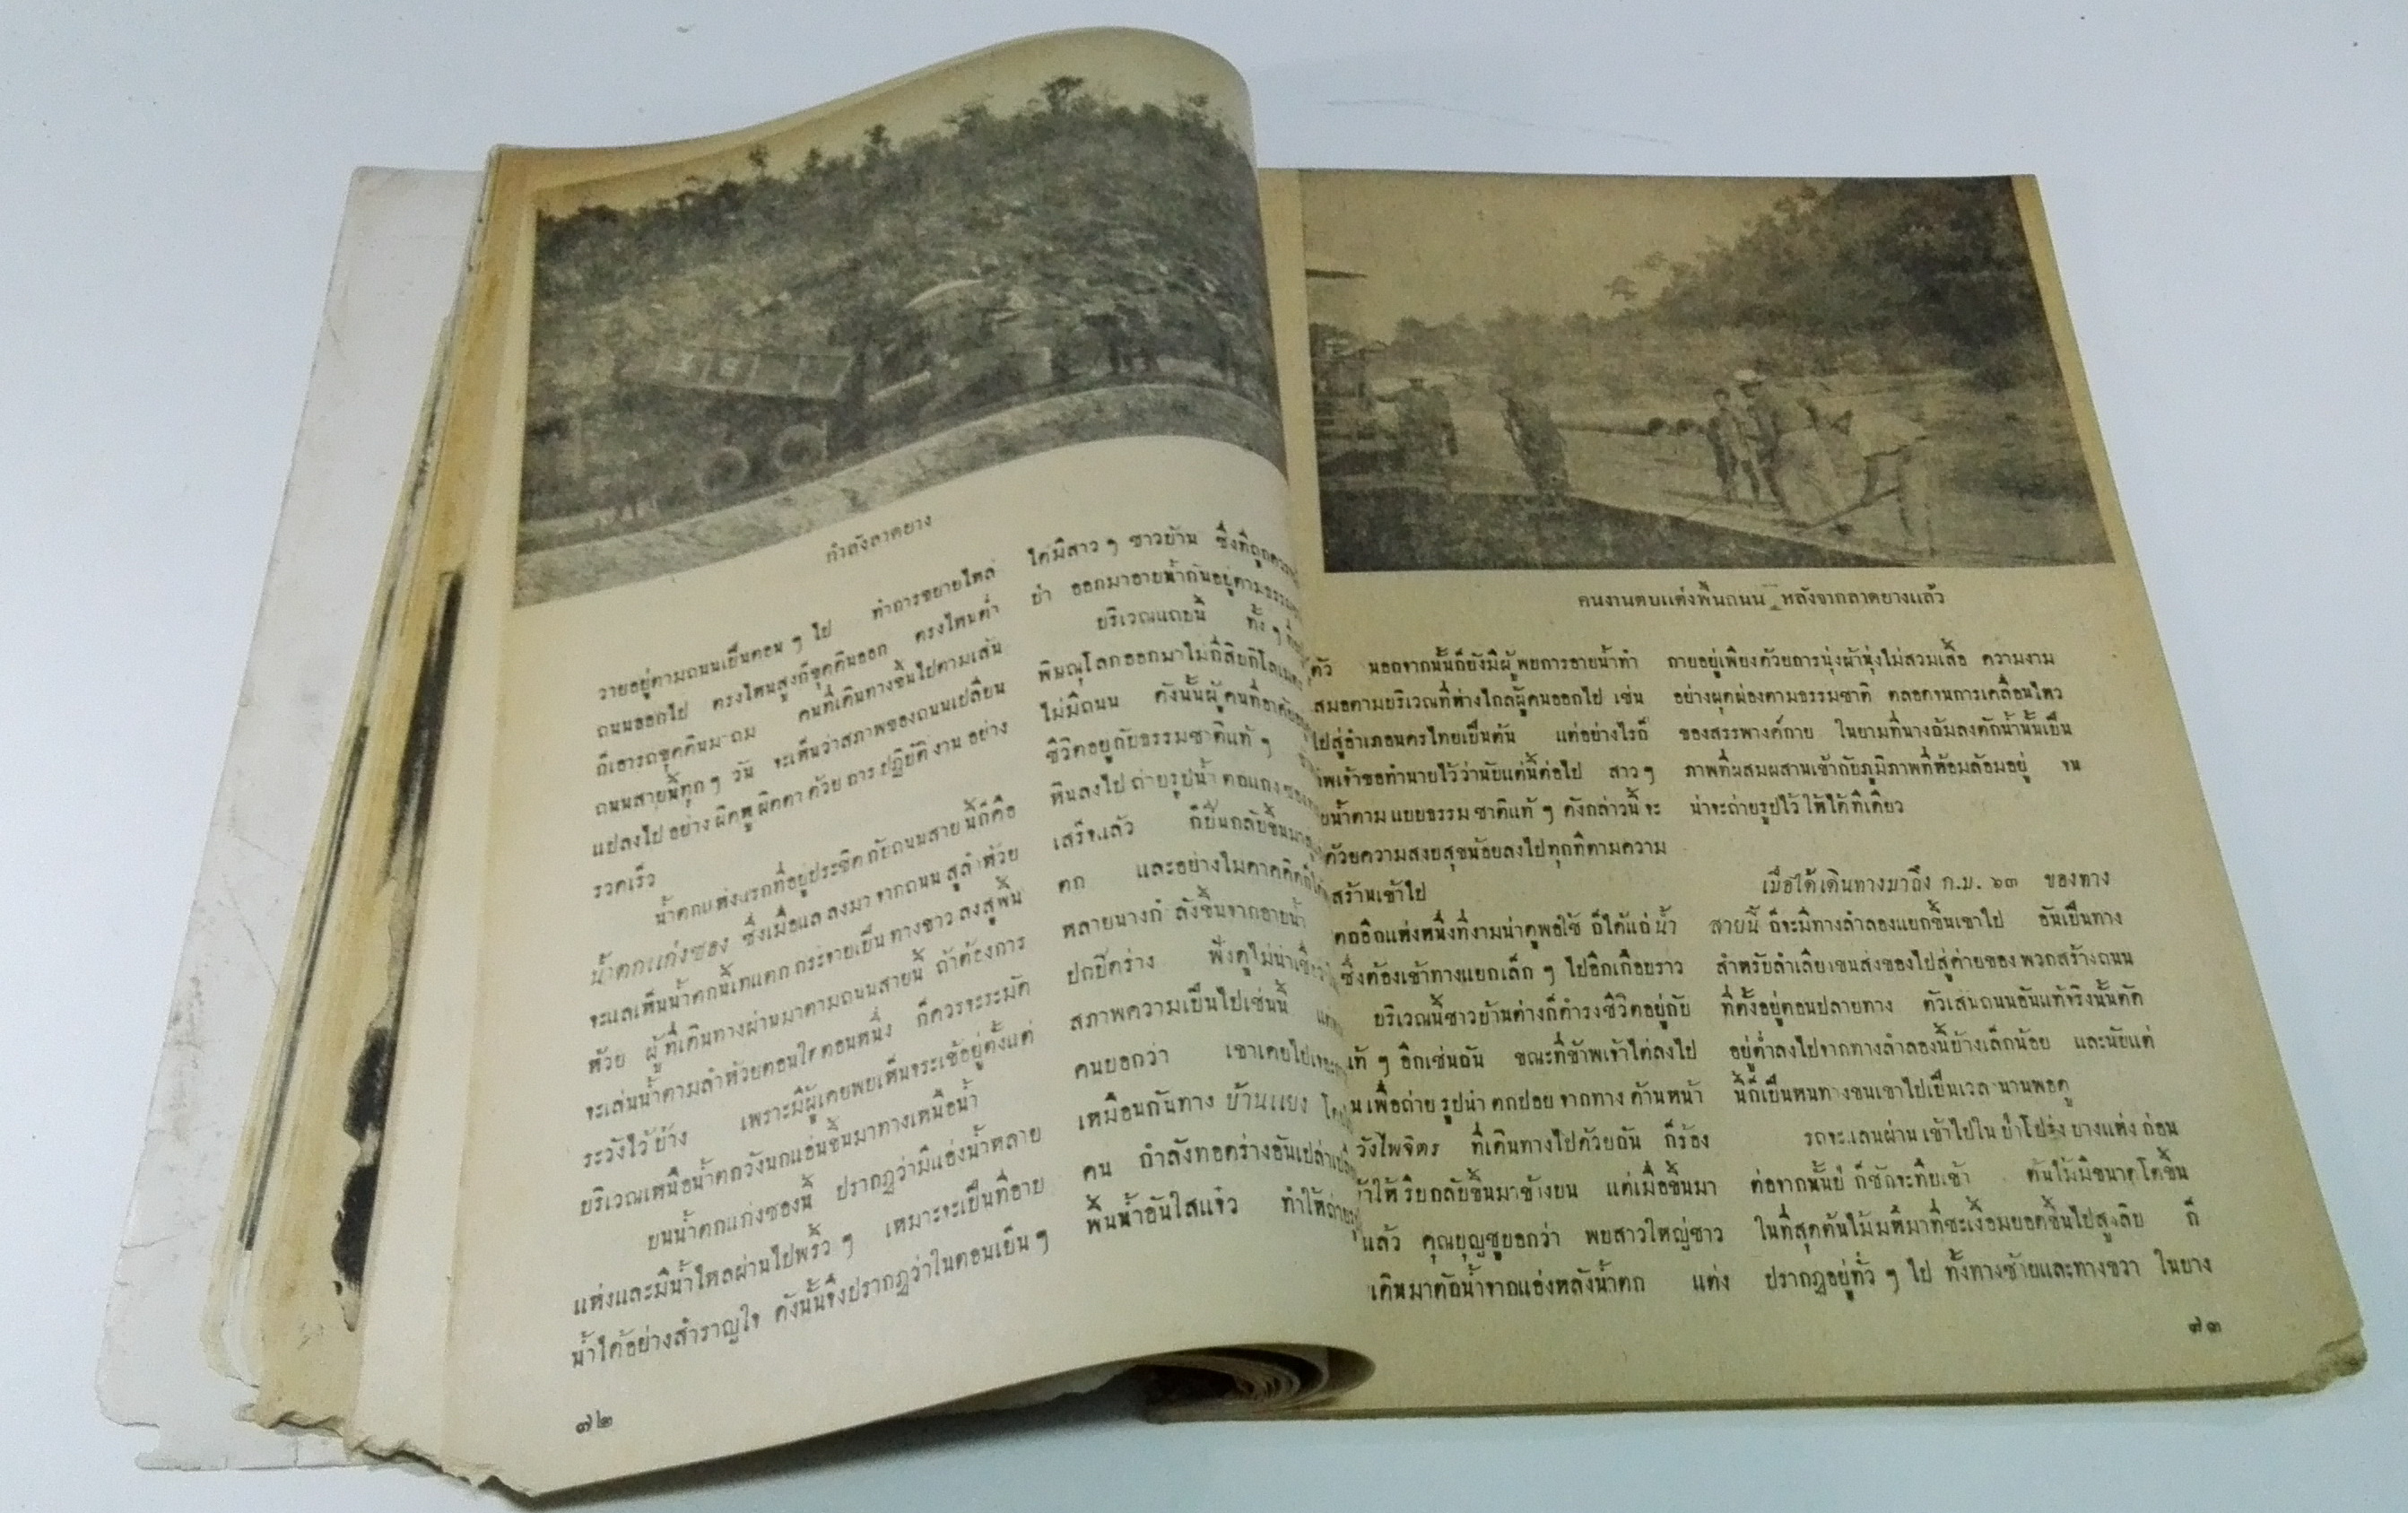 กำลังลาดยาง
วายอยู่ตามถนนเป็นตอน ๆ ไป ทำการขยายไหล่
ถนนออกไป ตรงไหนสูงก็ขุดดินออก ตรงไหนต่ำ
ก็เอารถขุดดินมาถม คนที่เดินทางขึ้นไปตามเส้น
ถนนสายนี้ทุก ๆ วัน จะเห็นว่าสภาพของถนนเปลี่ยน
แปลงไปอย่างผิดหูผิดตา ด้วย การ ปฏิบัติ งาน อย่าง
รวดเร็ว
น้ำตกแห่งแรกที่อยู่ประชิดกับถนนสายนี้ก็คือ
น้ำตกแก่งซอง ซึ่งเมื่อแลลงมาจากถนนสู่ลำห้วย
จะแลเห็นน้ำตกนี้เทแตกกระจายเป็นทางขาวลงสู่พื้น
ห้วย ผู้ที่เดินทางผ่านมาตามถนนสายนี้ ถ้าต้องการ
จะเล่นน้ำตามลำห้วยตอนใดตอนหนึ่ง ก็ควรจะระมัด
ระวังไว้บ้าง เพราะมีผู้เคยพบเห็นจระเข้อยู่ตั้งแต่
บริเวณเหนือน้ำตกวังนกแอ่นขึ้นมาทางเหนือน้ำ
บนน้ำตกแก่งซองนี้ ปรากฏว่ามีแอ่งน้ำหลาย
แห่งและมีน้ำไหลผ่านไปพริ้ว ๆ เหมาะจะเป็นที่อาบ
น้ำได้อย่างสำราญใจ ดังนั้นจึงปรากฏว่าในตอนเย็น ๆ
ได้มีสาว ๆ ชาวบ้าน ซึ่งที่ถูกควร
ป่า ออกมาอาบน้ำกันอยู่ตามธรรม
บริเวณแถบนี้ ทั้ง ๆ
พิษณุโลกออกมาไม่กี่สิบกิโลเมตร
ไม่มีถนน ดังนั้นผู้คนที่อาศัย
ชีวิตอยู่กับธรรมชาติแท้ ๆ
หินลงไป ถ่ายรูปน้ำตกแก่ง
เสร็จแล้ว ก็ปีนกลับขึ้นมา
ตก และอย่างไม่คาดคิด
หลายนางกำลังขึ้นจากอาบน้ำ
ปกปิดร่าง ฟังดูไม่น่าเชื่อ
สภาพความเป็นไปเช่นนี้
คนบอกว่า เขาเคยไป
เหมือนกันทาง บ้านแยง
คน กำลังทอดร่างอันเปล่า
พื้นน้ำอันใสแจ๋ว ทำให้
๗๒
คนงานตบแต่งพื้นถนน หลังจากลาดยางแล้ว
ตัว นอกจากนั้นก็ยังมีผู้พบการอาบน้ำทำ
สมอตามบริเวณที่ห่างไกลผู้คนออกไป เช่น
ไปสู่อำเภอนครไทยเป็นต้น แต่อย่างไรก็
พเจ้าขอทำนายไว้ว่านับแต่นี้ต่อไป สาว ๆ
บน้ำตาม แบบธรรมชาติแท้ ๆ ดังกล่าวนี้ จะ
ด้วยความสงบสุขน้อยลงไปทุกทีตามความ
สร้านเข้าไป
ตกอีกแห่งหนึ่งที่งามน่าดูพอใช้ ก็ได้แก่ น้ำ
ซึ่งต้องเข้าทางแยกเล็ก ๆ ไปอีกเกือบราว
บริเวณนี้ชาวบ้านต่างก็ดำรงชีวิตอยู่กับ
แท้ ๆ อีกเช่นกัน ขณะที่ข้าพเจ้าไต่ลงไป
น เพื่อถ่าย รูปน้ำ ตกปอย จากทาง ด้านหน้า
วังไพจิตร ที่เดินทางไปด้วยกัน ก็ร้อง
ให้ รีบกลับขึ้นมาข้างบน แต่เมื่อขึ้นมา
แล้ว คุณบุญชูบอกว่า พบสาวใหญ่ชาว
เดินมาตักน้ำจากแอ่งหลังน้ำตก แต่ง
กายอยู่เพียงด้วยการนุ่งผ้านุ่งไม่สวมเสื้อ ความงาม
อย่างผุดผ่องตามธรรมชาติ ตลอดจนการเคลื่อนไหว
ของสรรพางค์กาย ในยามที่นางก้มลงตักน้ำนั้นเป็น
ภาพที่ผสมผสานเข้ากับภูมิภาพที่ห้อมล้อมอยู่ จน
น่าจะถ่ายรูปไว้ ให้ได้ทีเดียว
เมื่อได้เดินทางมาถึง ก.ม. ๖๓ ของทาง
สายนี้ ก็จะมีทางลำลองแยกขึ้นเขาไป อันเป็นทาง
สำหรับลำเลียงขนส่งของไปสู่ค่ายของ พวกสร้างถนน
ที่ตั้งอยู่ตอนปลายทาง ตัวเส้นถนนอันแท้จริงนั้นตัด
อยู่ต่ำลงไปจากทางลำลองนี้บ้างเล็กน้อย และนับแต่
นี้ก็เป็นหนทางบนเขาไปเป็นเวลานานพอดู
รถจะแล่นผ่าน เข้าไปใน ป่าโปร่ง บางแห่ง ก่อน
ต่อจากนั้นป่า ก็ชักจะทึบเข้า ต้นไม้มีขนาดโตขึ้น
ในที่สุดต้นไม้มหึมาที่ชะเงื้อมยอดขึ้นไปสูงลิบ ก็
ปรากฏอยู่ทั่ว ๆ ไป ทั้งทางซ้ายและทางขวา ในบาง
๗๓